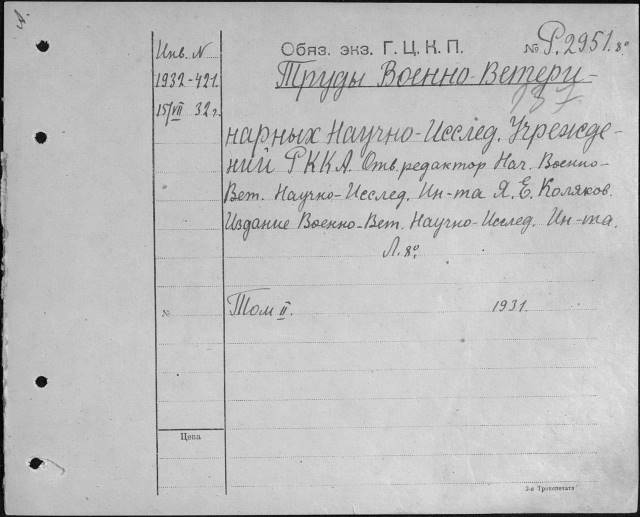 Инв. N
1932-421.
15/VII 32 г.
Обяз. экз. Г. Ц. К. П.
№ Р. 2951. 8º
Труды Военно-Ветери-
137
нарных Научно-Исслед. Учрежде-
ний РККА. Отв. редактор Нач. Военно-
Вет. Научно-Исслед. Ин-та Я. Е. Коляков.
Издание Военно-Вет. Научно-Исслед. Ин-та.
Л. 8º.
№
Том II.
1931.
Цена